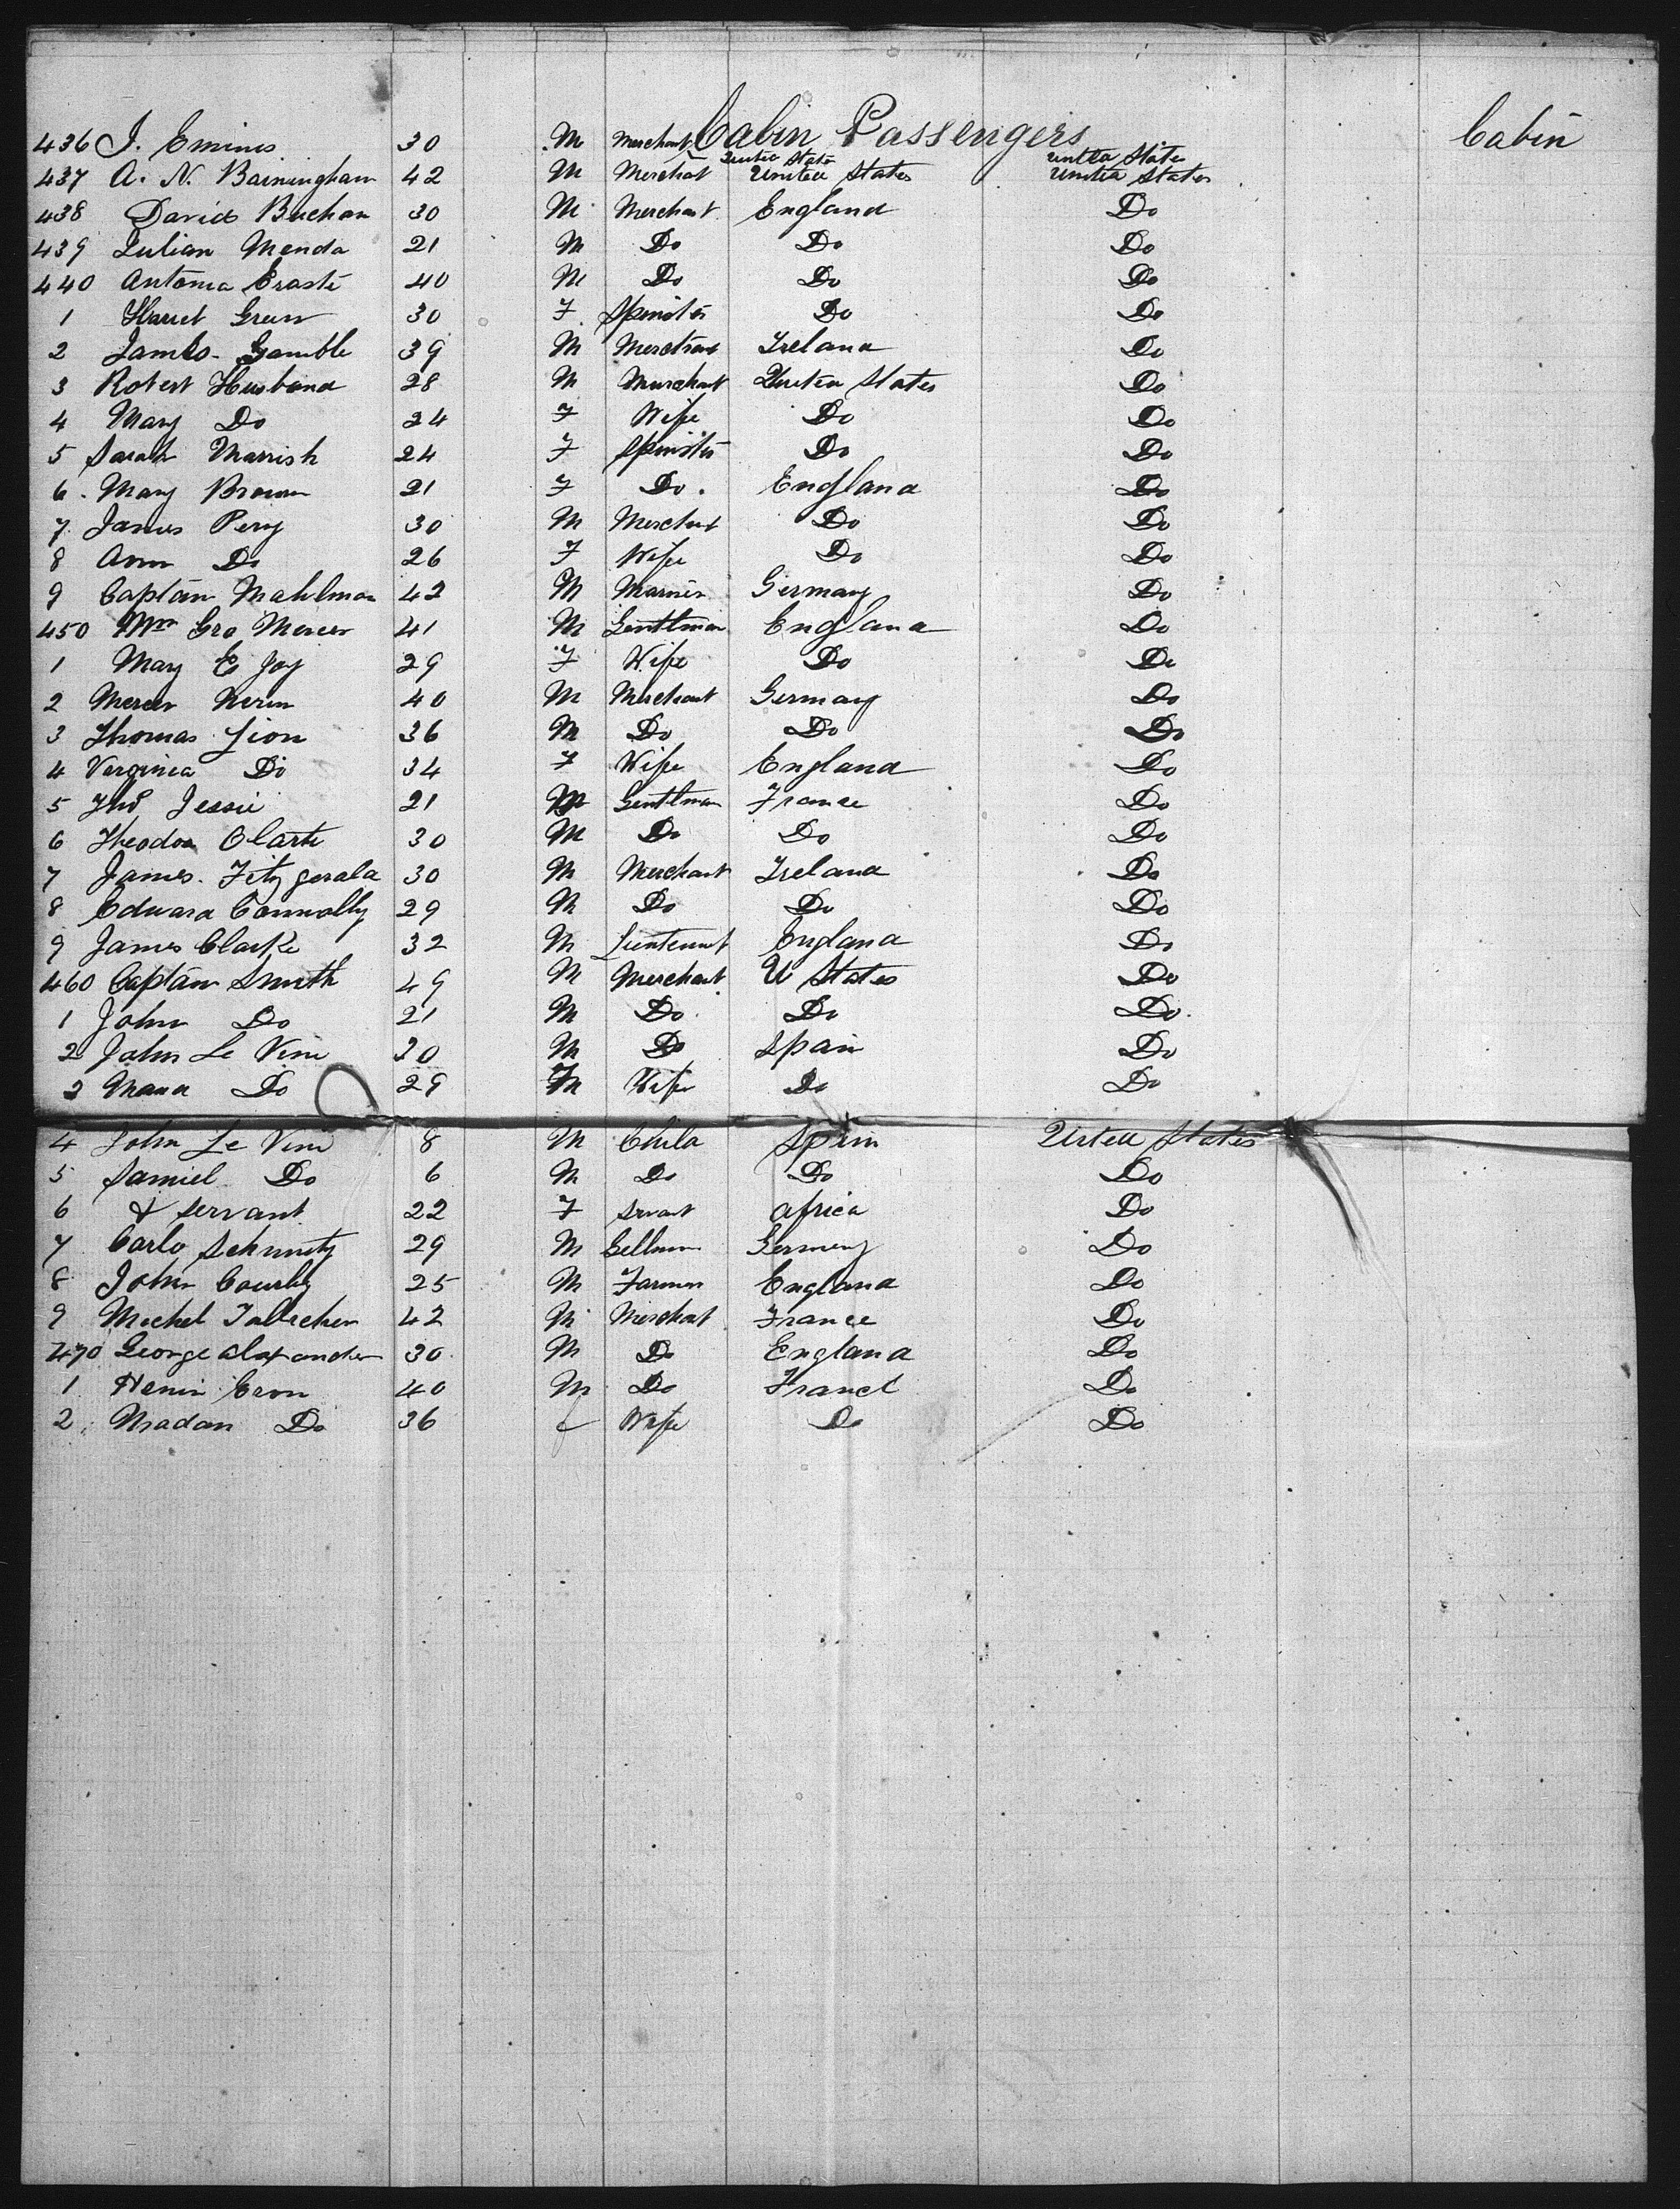 Cabin Passengers Cabin
436 J. Eminis 30 M Merchant United States United States
437 A. N. Barningham 42 M Merchant United States United States
438 David Buchan 30 M Merchant England Do
439 Julian Menda 21 M Do Do Do
440 Antonia Eraste 40 M Do Do Do
1 Harriet Green 30 F Spinster Do Do
2 James Gamble 39 M Merchant Ireland Do
3 Robert Husband 28 M Merchant United States Do
4 Mary Do 24 F Wife Do Do
5 Sarah Marrish 24 F Spinster Do Do
6 Mary Brown 21 F Do England Do
7 James Pery 30 M Merchant Do Do
8 Ann Do 26 F Wife Do Do
9 Captain Mahlman 42 M Mariner Germany Do
450 Geo Mercer 41 M Gentlman England Do
1 Mary E Joy 29 F Wife Do Do
2 Mercer 40 M Merchant Germany Do
3 Thomas 36 M Do Do Do
4 Verginia Do 34 F Wife England Do
5 Jessie 21 M Gentlman France Do
6 Theodor Clarte 30 M Do Do Do
7 James Fitzgerald 30 M Merchant Ireland Do
8 Edward Connolly 29 M Do Do Do
9 James Clarke 32 M Lieutenant England Do
460 Captain Smith 49 M Merchant U States Do
1 John Do 21 M Do Do Do
2 John Le Vine 30 M Do Spain Do
3 Maria Do 29 F Wife Do Do
4 John Le Vine 8 M Child Spain United States
5 Samiel Do 6 M Do Do Do
6 & servant 22 F Servant Africa Do
7 Carlo Schmitz 29 M Germany Do
8 John 25 M Farmer England Do
9 Michel 42 M Merchant France Do
470 George Alexander 30 M Do England Do
1 Henin Eron 40 M Do France Do
2 Madam Do 36 f Wife Do Do